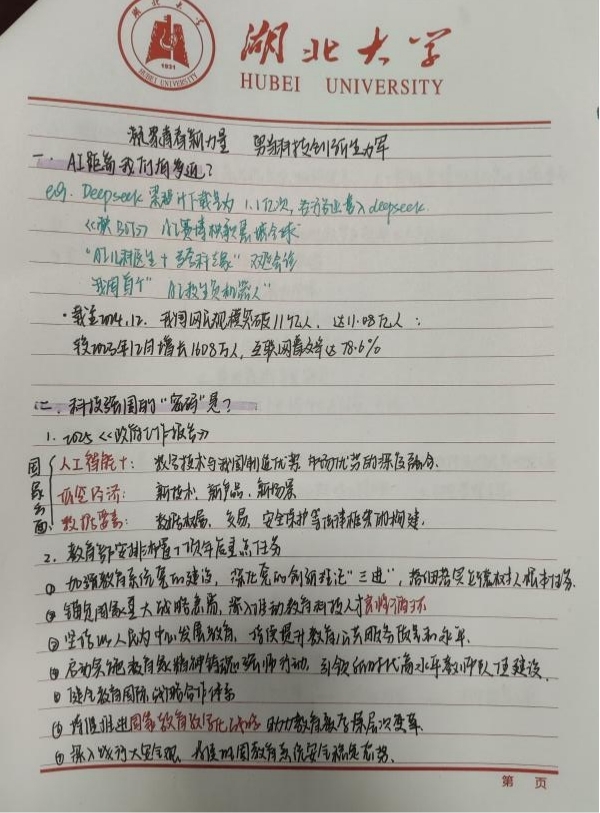 湖北大学
HUBEI UNIVERSITY
1931
HUBEI UNIVERSITY
凝聚青春新力量 勇当科技创新生力军
一. AI距离我们有多远?
eg. Deepseek 累计下载量为 1.1亿次, 各行各业接入deepseek.
"AI儿科医生+多学科专家" 双医会诊
我国首个"AI救生员机器人"
·截至2024.12. 我国网民规模突破11亿人. 达11.08亿人:
较2023年12月增长1608万人, 互联网普及率达78.6%
二. 科技强国的"密码"是?
1. 2025 <<政府工作报告>>
国家层面
人工智能+: 数字技术与我国制造优势. 市场优势的深度融合.
低空经济: 新技术. 新产品. 新场景
数据要素: 数据权属、交易、安全保护等法律框架的构建.
2. 教育部安排部署7项年度重点任务
① 加强教育系统党的建设, 深化党的创新理论"三进", 落细落实立德树人根本任务.
② 锚定国家重大战略急需, 深入推动教育科技人才良性循环
③ 坚持以人民为中心发展教育, 持续提升教育公共服务质量和水平.
④ 启动实施教育家精神铸魂强师行动, 引领新时代高水平教师队伍建设.
⑤ 健全教育国际战略合作体系
⑥ 持续推进国家教育数字化战略 助力教育教学深层次变革.
⑦ 深入践行大安全观, 加快巩固教育系统安全稳定态势.
第 页